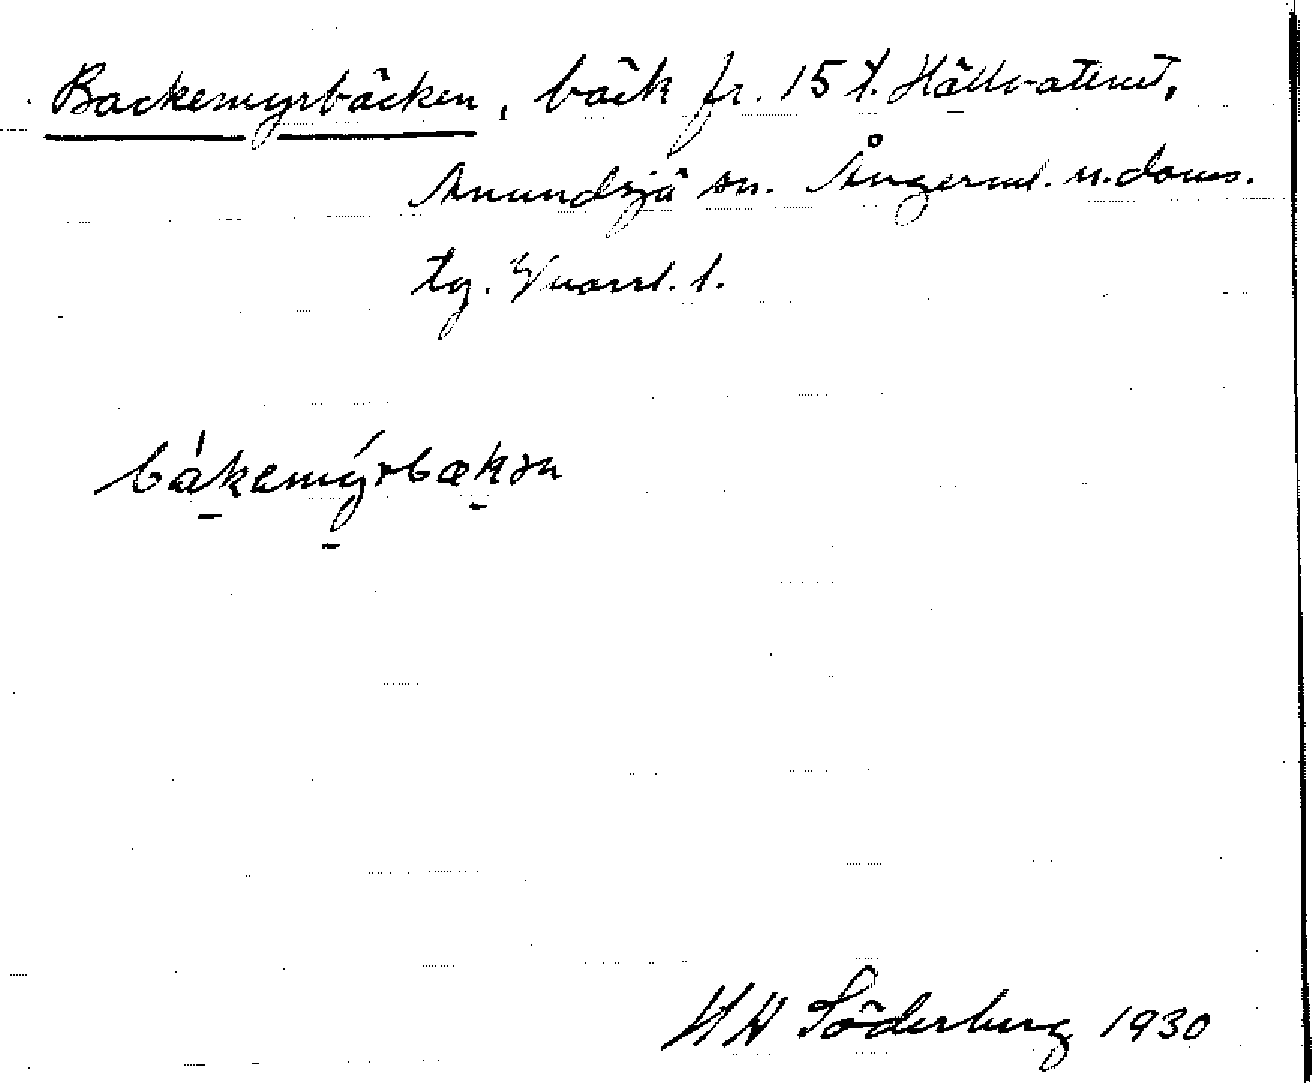 Backemyrbäcken, bäck fr. 15 t. Hällvattnet,
Anundsjö sn. Ångerml. n. doms.
tg. Vnorrl. l.
bákemýrbækən
H W Söderberg 1930